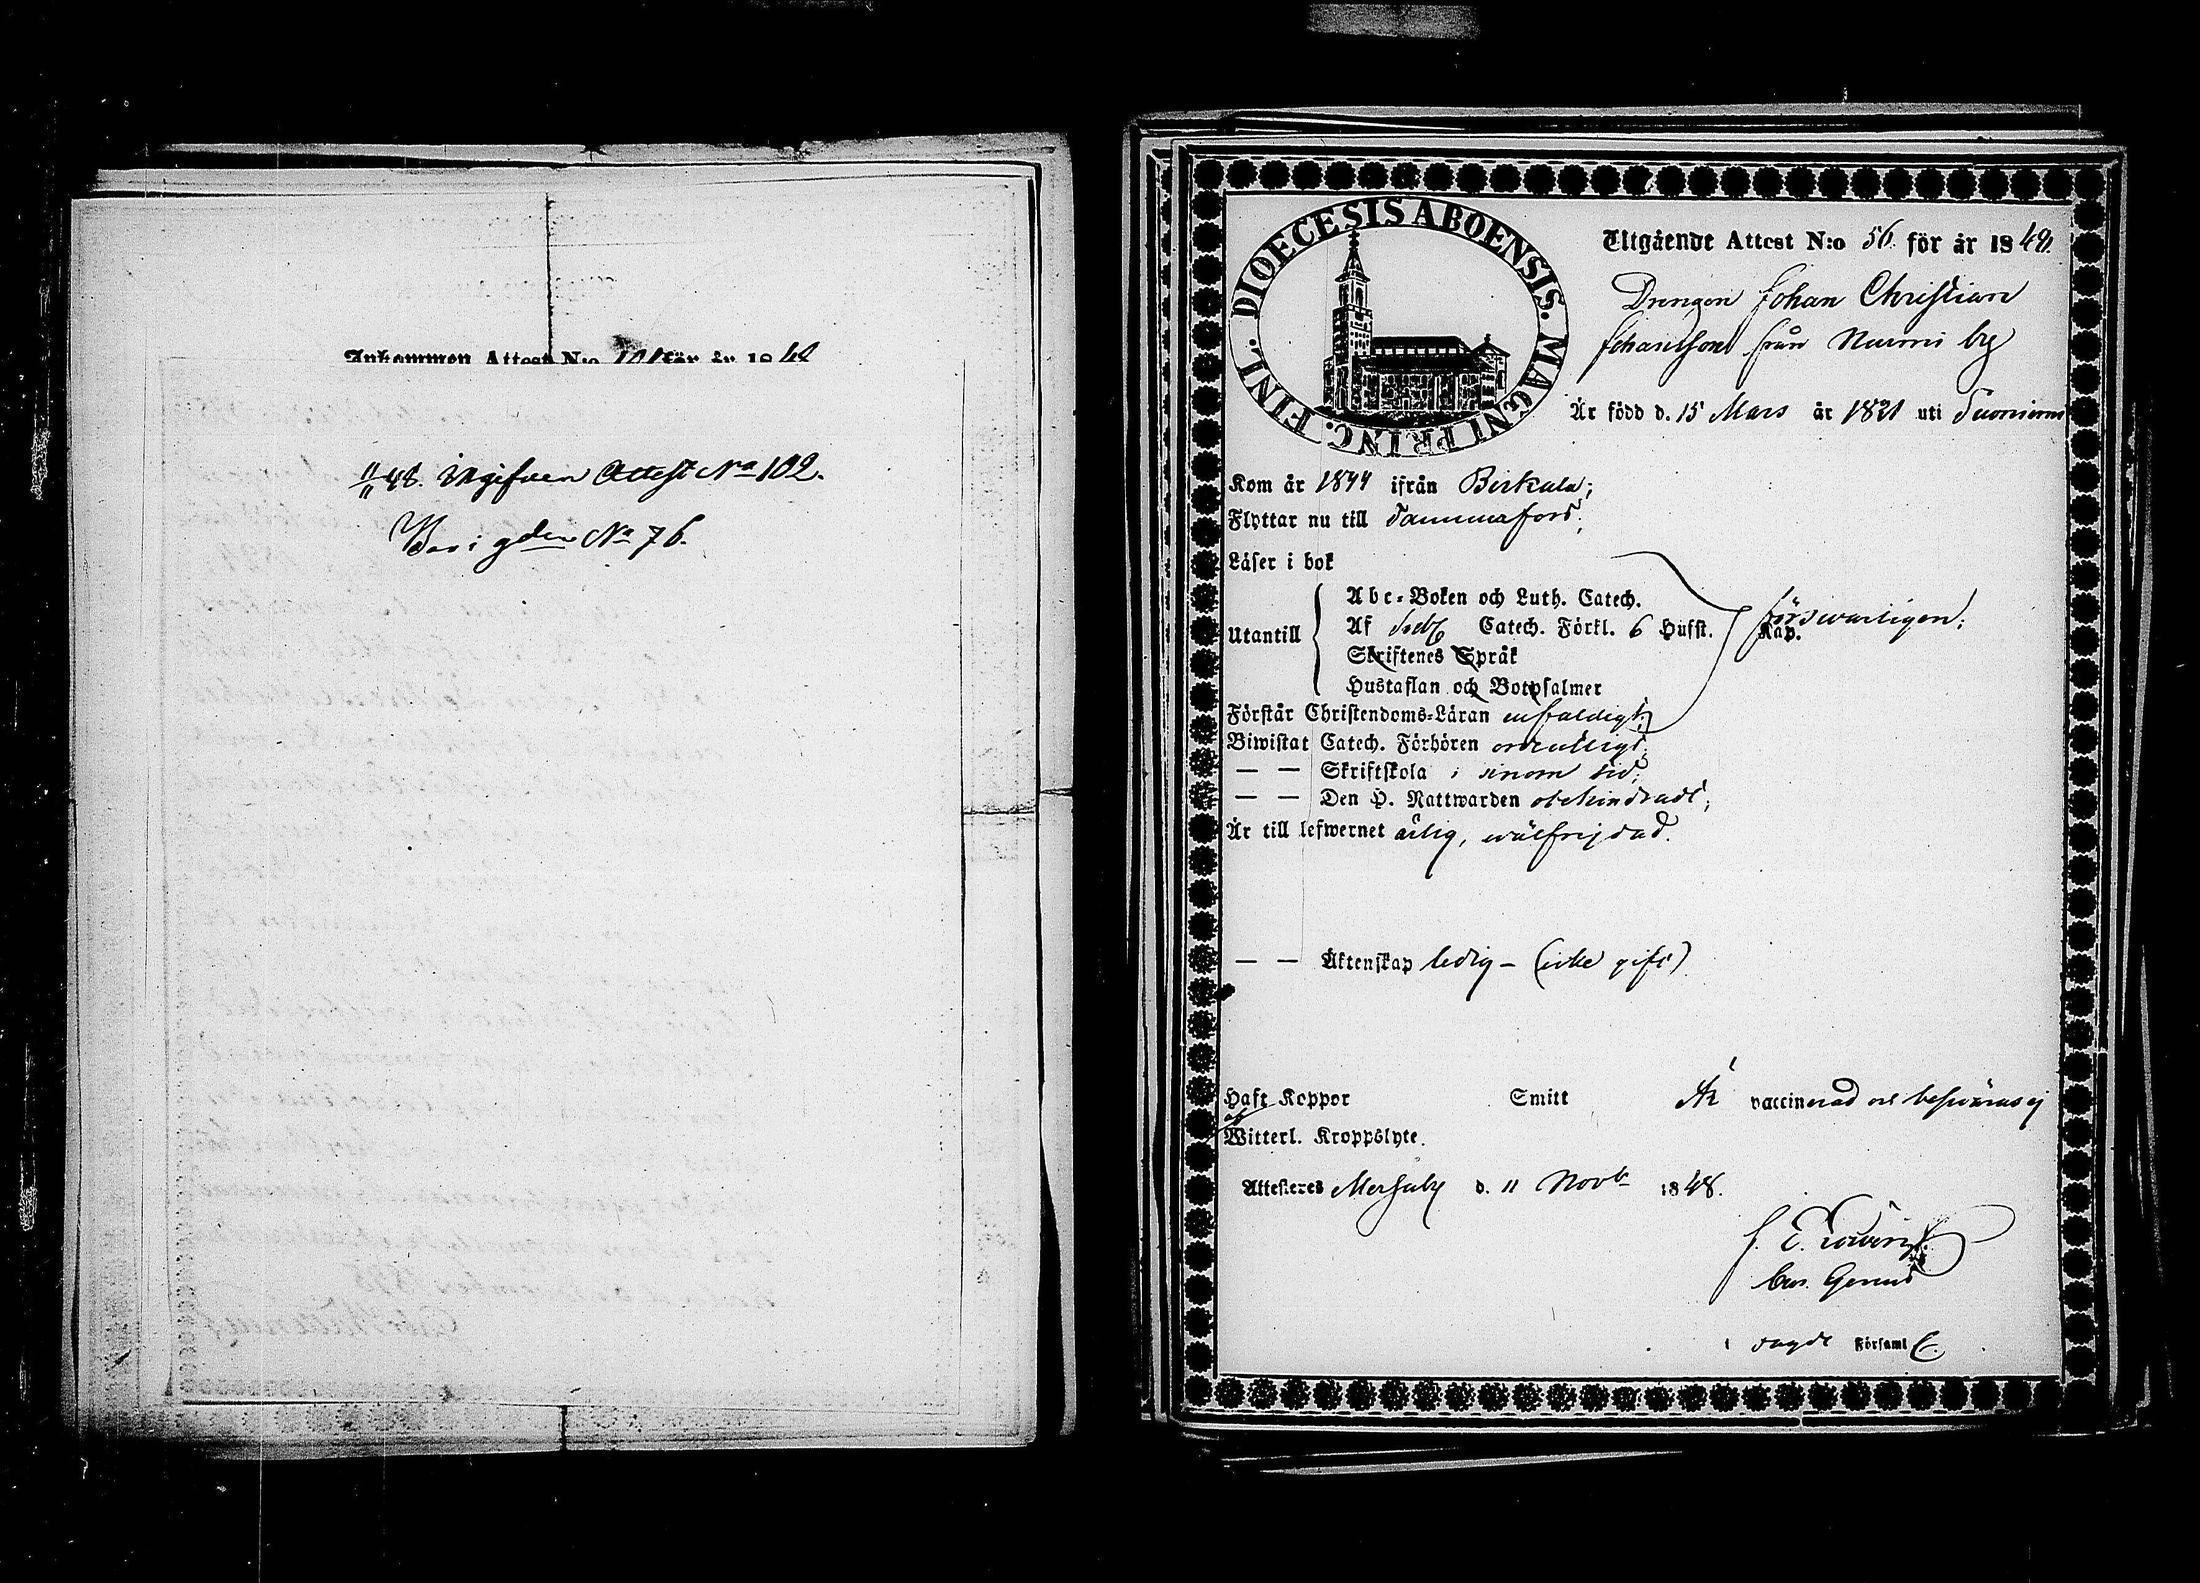 Ankommen Attest N:o 101 för år 1848
11/11 48. ingifven Attest No 102.
No 76.
DIOECESIS ABOENSIS. MAGNI PRINC. FINL.
Utgående Attest N:o 56. för år 1848.
Drengen Johan Christian
Johansson från Nurmi by
Är född d. 15 Mars år 1821 uti
Kom år 1844 ifrån Birkala;
Flyttar nu till Tammafors;
Läser i bok
Abc-Boken och Luth. Catech.
Utantill Af Sveb. Catech. Förkl. 6 Hufst. Kap. försvarligen;
Skriftenes Språk
Hustaflan och Botpsalmer
Förstår Christendoms-Läran enfaldigt;
Biwistat Catech. Förhören ordentligt;
— — Skriftskola i sinom tid;
— — Den H. Nattwarden obehindradt;
Är till lefwernet ärlig, wälfrejdad.
— — Äktenskap ledig — (icke gift)
Haft Koppor Smitt Är vaccinerad och besväras ej
af
Witterl. Kroppslyte.
Attesteras Messuby d. 11 Novb 1848.
i sagde Församl.